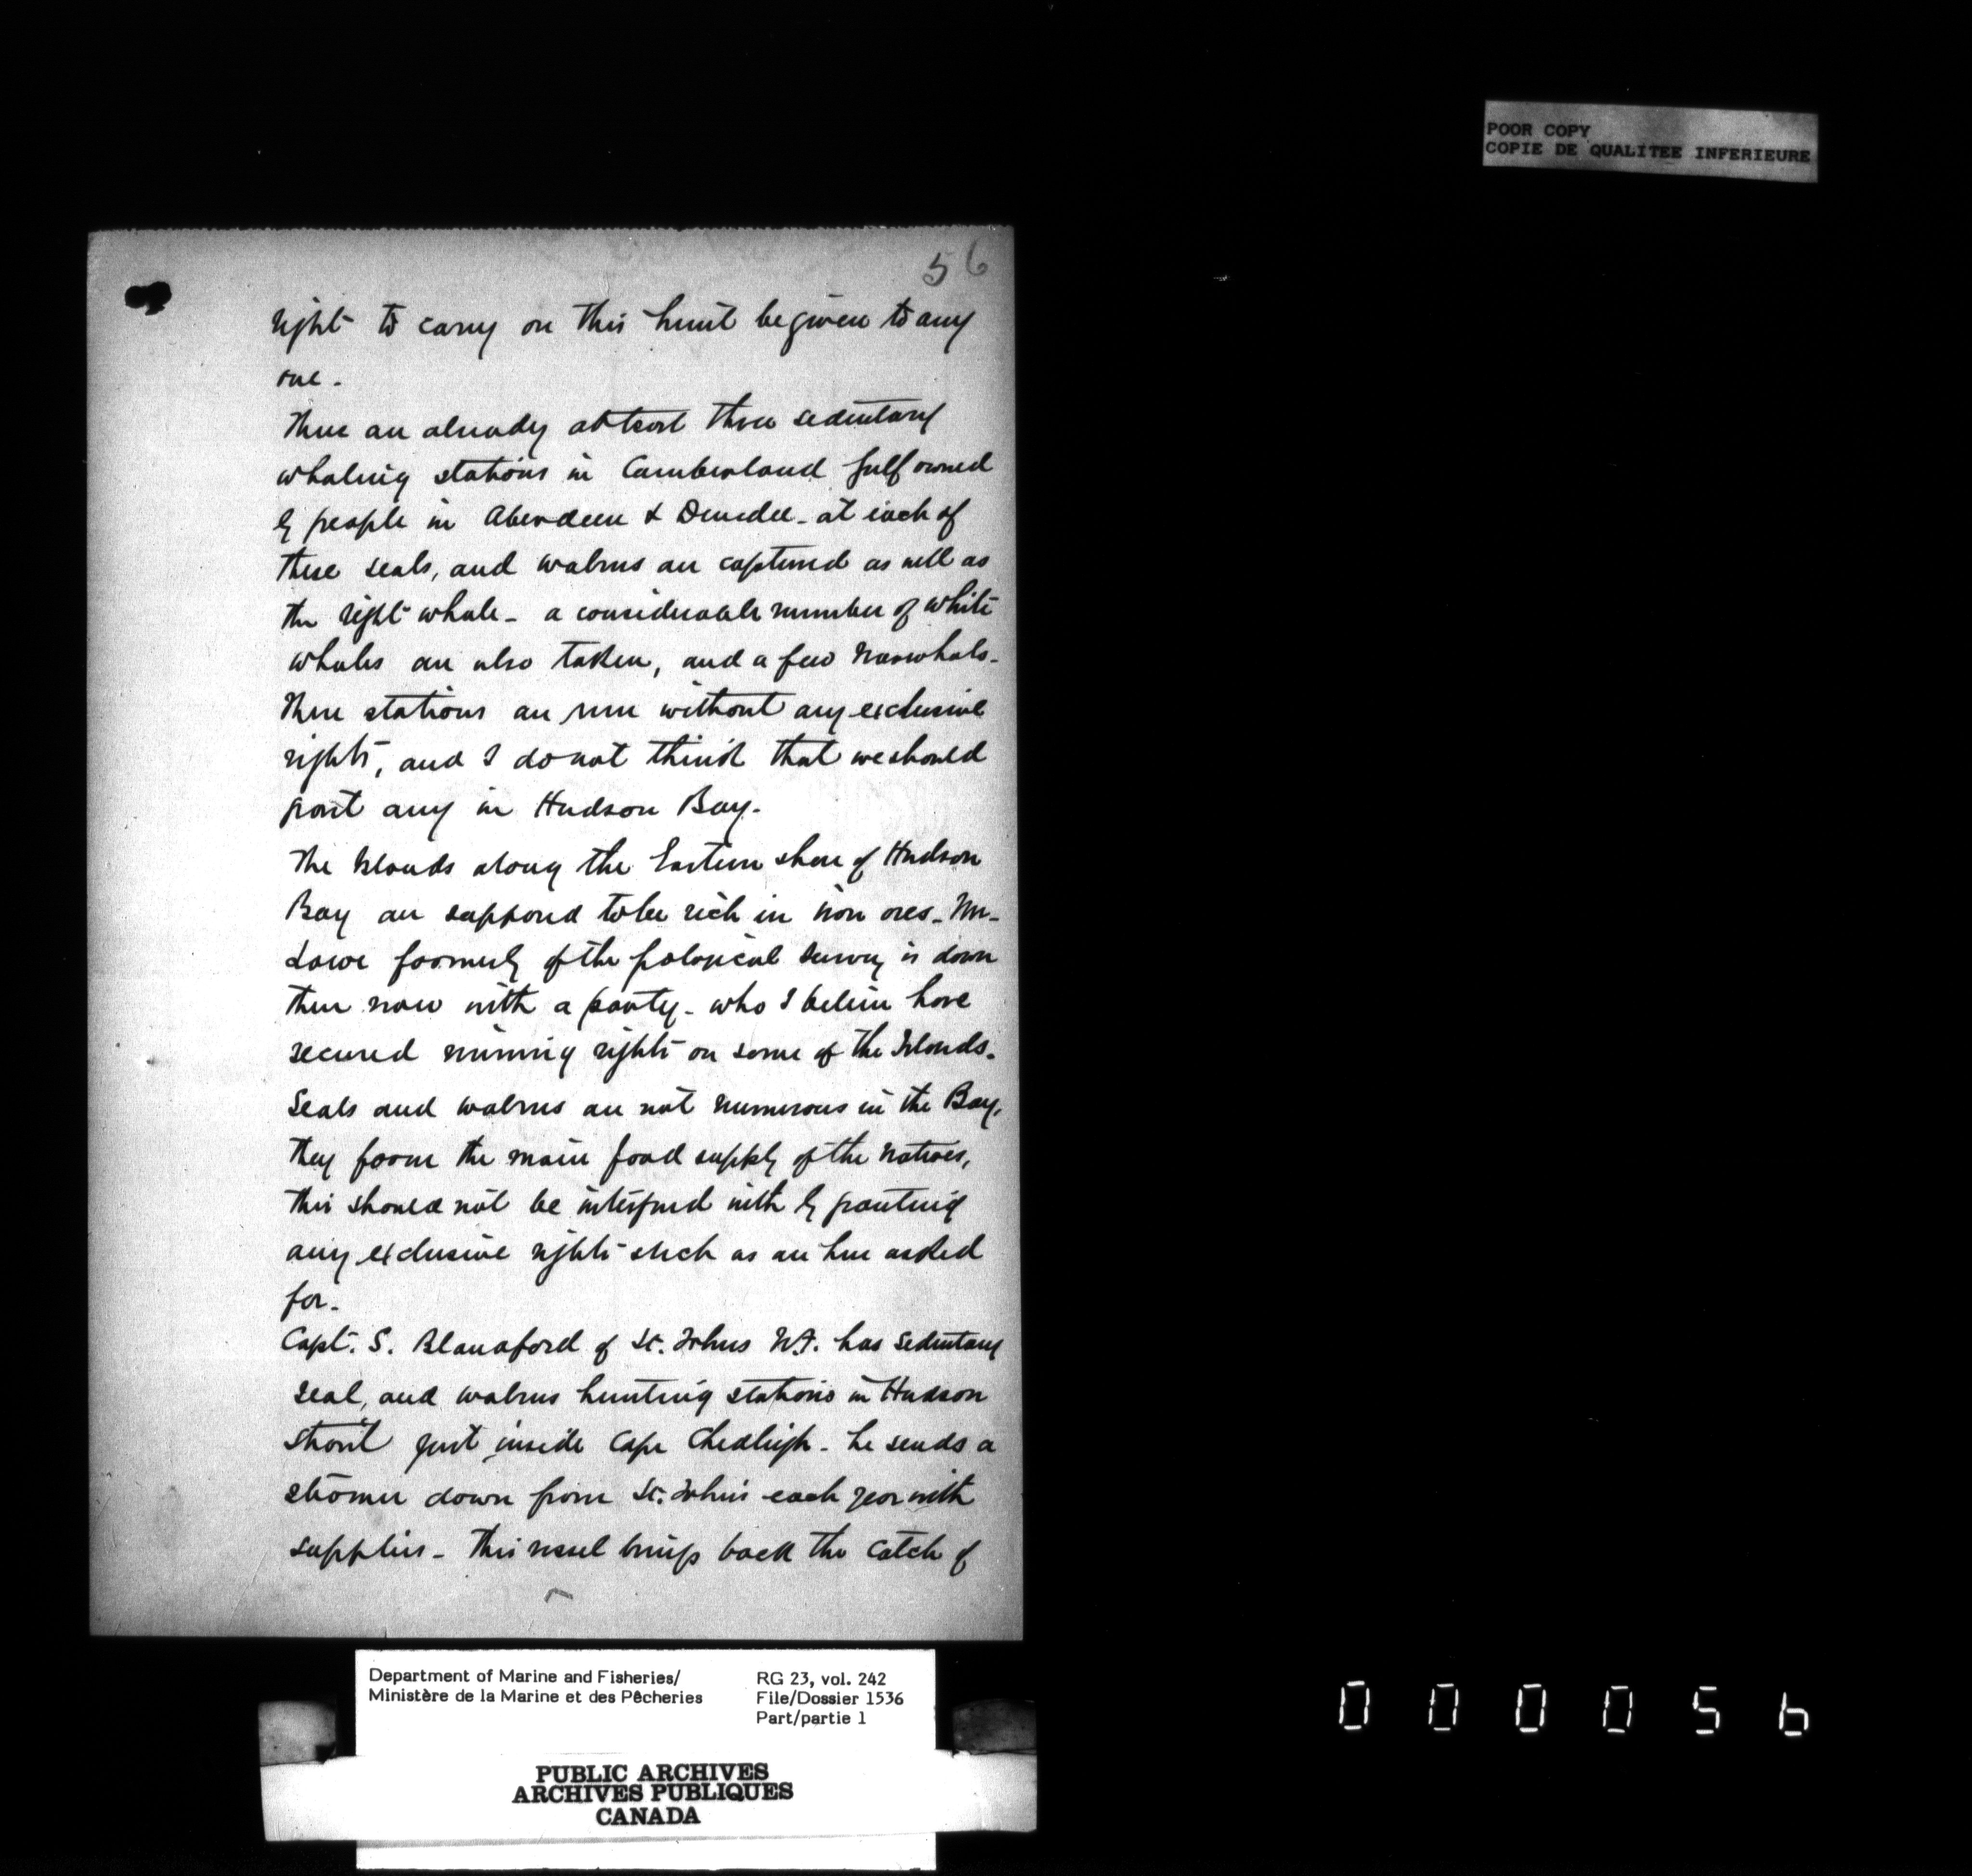 POOR COPY
COPIE DE QUALITEE INFERIEURE
56
right to carry on this hunt be given to any
one.
There are already at least three sedentary
whaling stations in Cumberland Gulf owned
by people in Aberdeen & Dundee - at each of
these seals, and walrus are captured as well as
the right whale - a considerable number of white
whales are also taken, and a few narwhals.
These stations are run without any exclusive
rights, and I do not think that we should
grant any in Hudson Bay.
The Islands along the Eastern shore of Hudson
Bay are supposed to be rich in iron ores - Mr.
Lowe formerly of the Geological Survey is down
there now with a party - who I believe have
secured mining rights on some of the Islands.
Seals and walrus are not numerous in the Bay,
they form the main food supply of the natives,
this should not be interfered with by granting
any exclusive rights such as are here asked
for.
Capt. S. Blandford of St. Johns N.F. has sedentary
seal, and walrus hunting stations in Hudson
Strait just inside Cape Chedleigh - he sends a
steamer down from St. John's each year with
supplies - This vessel brings back the catch of
Department of Marine and Fisheries/
Ministère de la Marine et des Pêcheries
RG 23, vol. 242
File/Dossier 1536
Part/partie 1
PUBLIC ARCHIVES
ARCHIVES PUBLIQUES
CANADA
000056